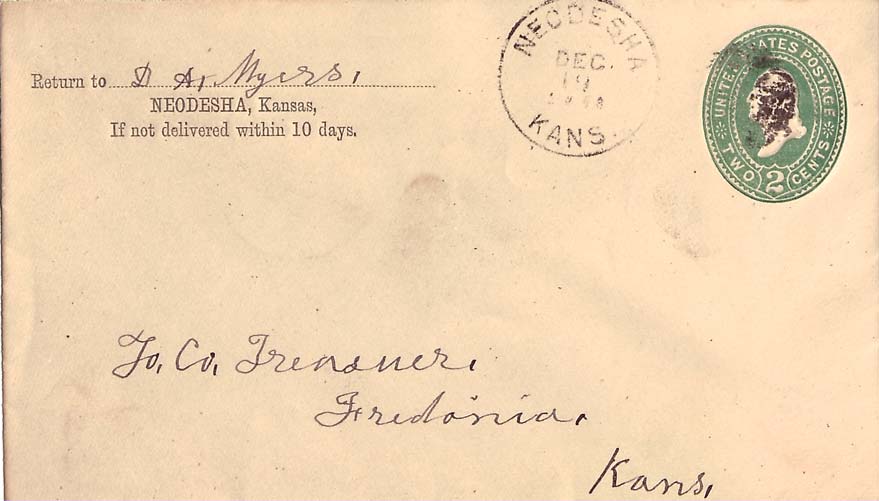 Return to D. A. Myers,
NEODESHA, Kansas,
If not delivered within 10 days.
NEODESHA
DEC.
KANS.
UNITED STATES POSTAGE
TWO 2 CENTS
To, Co, Treasuer,
Fredonia,
Kans,